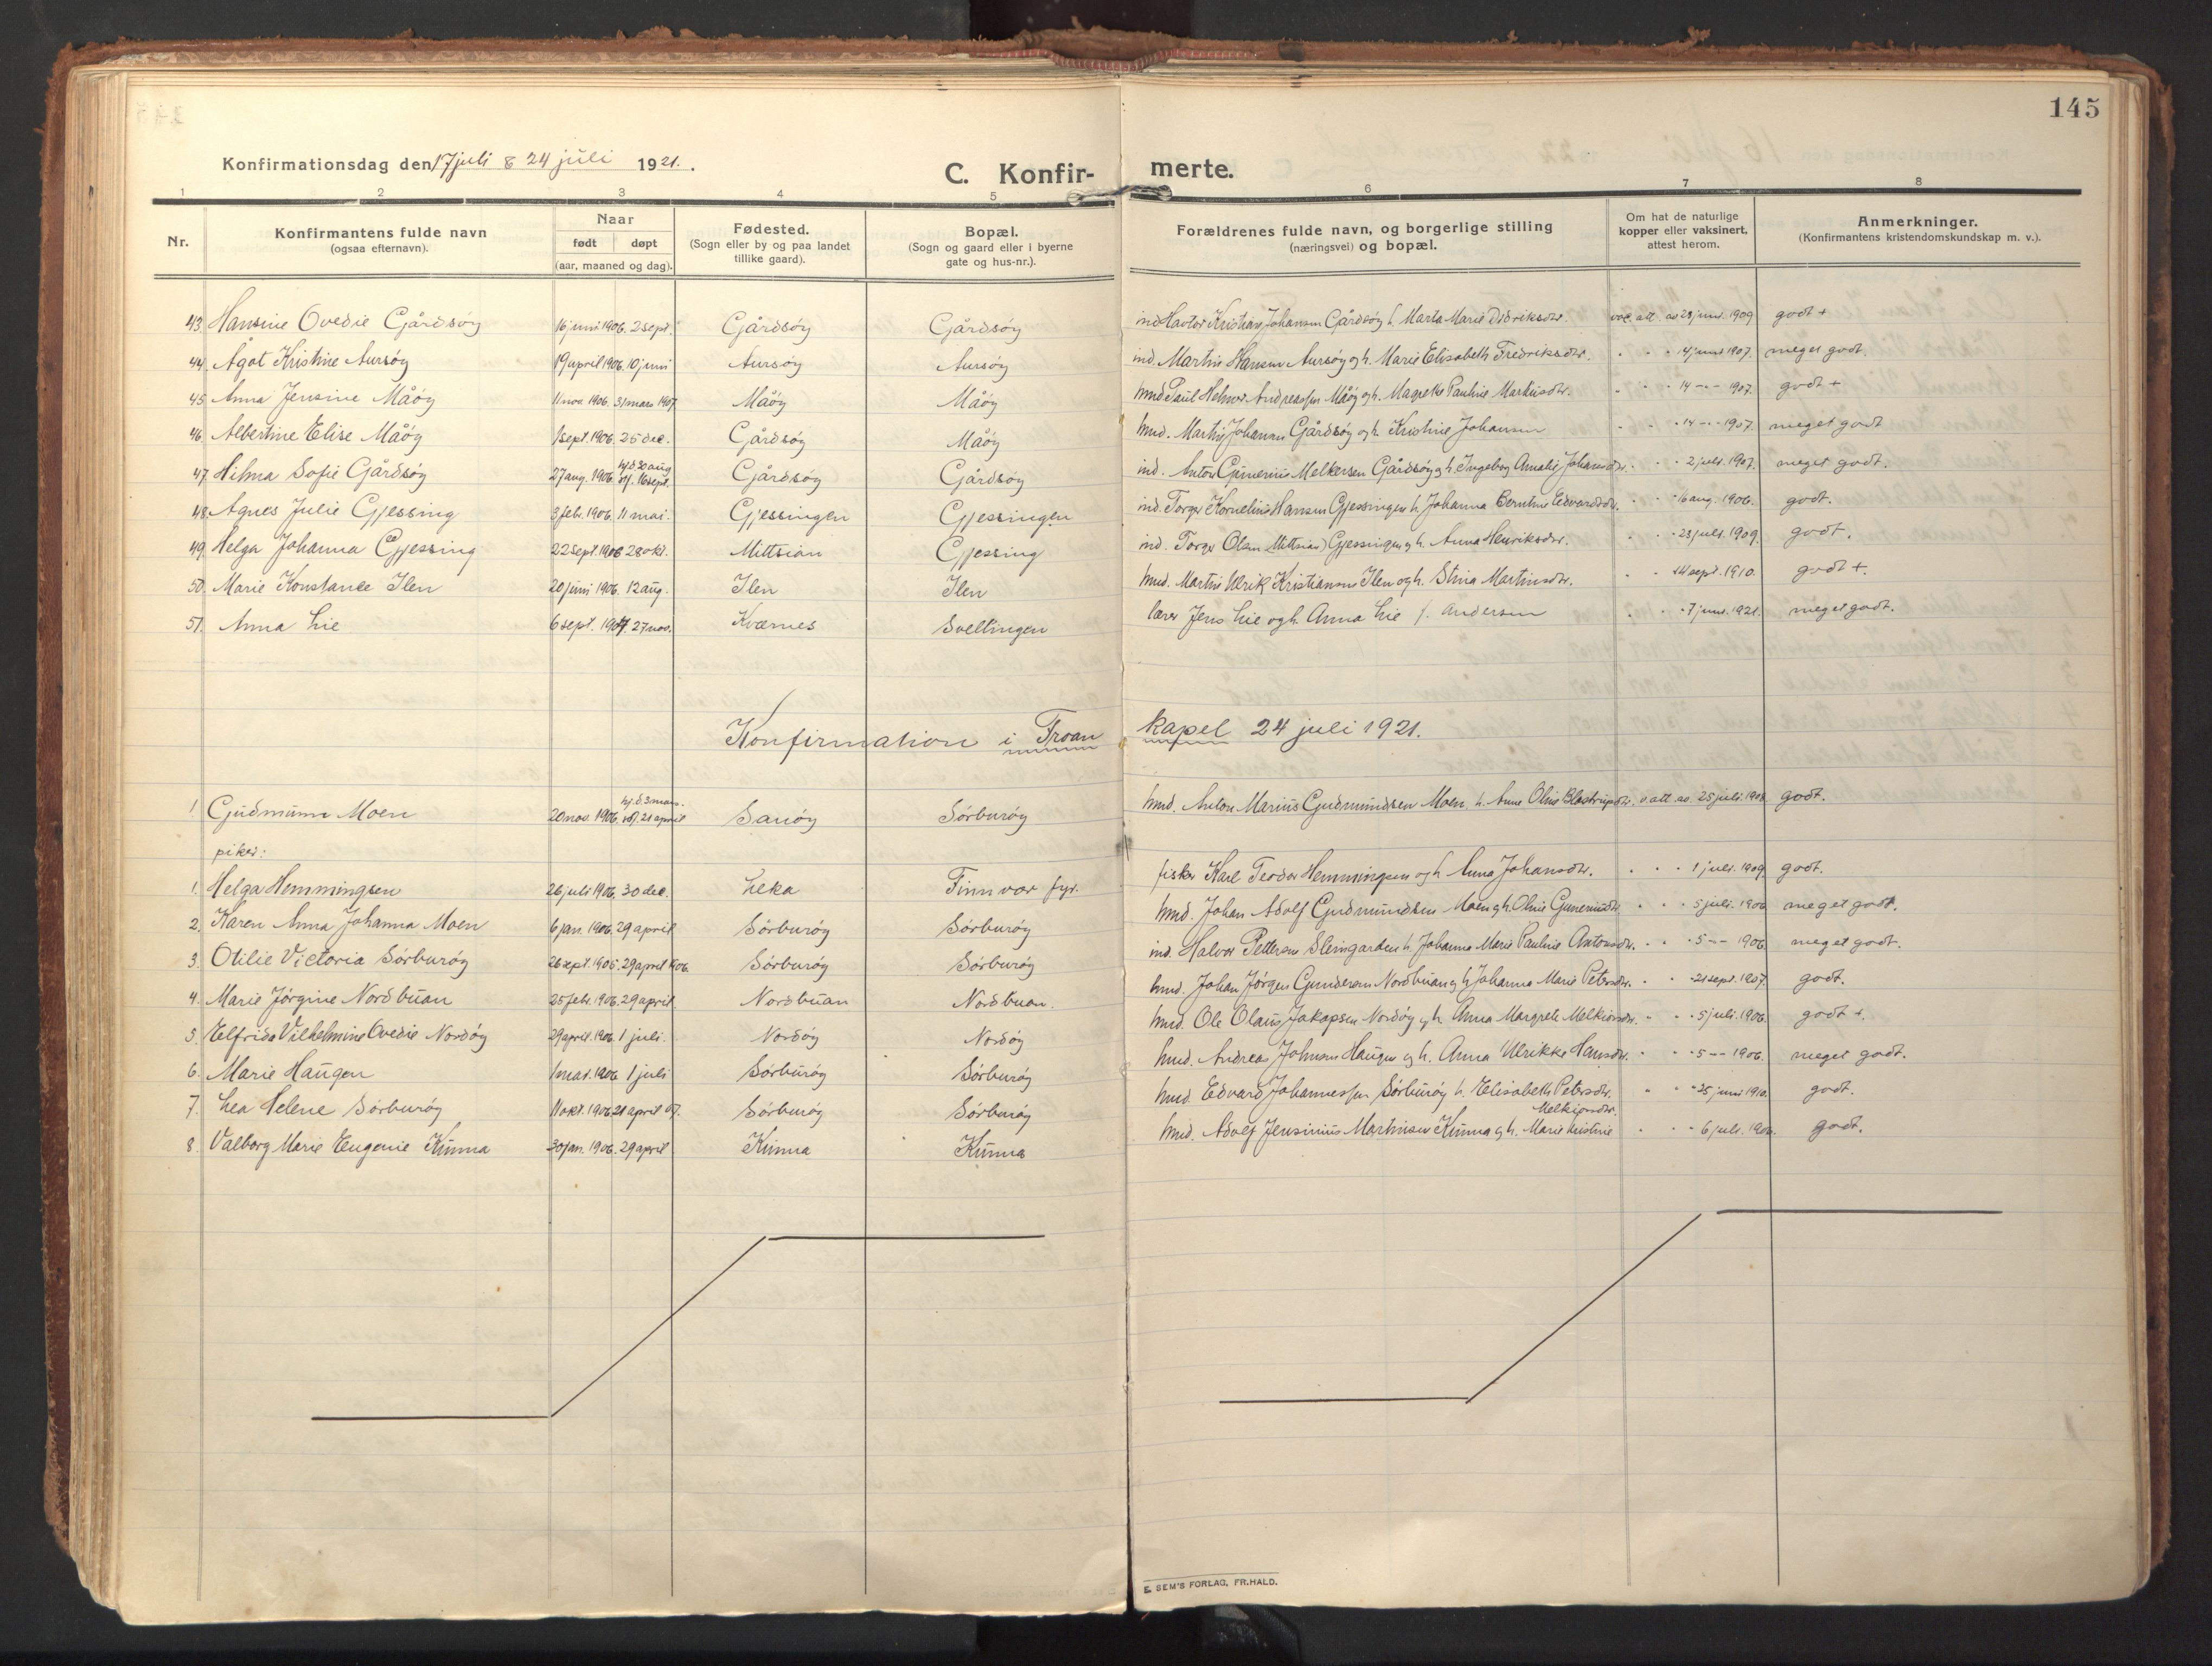 145
Konfirmationsdag den 17 juli & 24 juli 1921.
C. Konfirmerte.
1 2 3 4 5 6 7 8
Nr.
Konfirmantens fulde navn (ogsaa efternavn).
Naar født døpt (aar, maaned og dag).
Fødested. (Sogn eller by og paa landet tillike gaard).
Bopæl. (Sogn og gaard eller i byerne gate og hus-nr.).
Forældrenes fulde navn, og borgerlige stilling (næringsvei) og bopæl.
Om hat de naturlige kopper eller vaksinert, attest herom.
Anmerkninger. (Konfirmantens kristendomskundskap m. v.).
43. Hansine Ovedie Gårdsöy 16 juni 1906. 2 sept. Gårdsöy Gårdsöy ind Kristian Johansen Gårdsöy h. Marta Marie Didriksdtr. vac. att. av 23 juni 1909 godt +
44. Ågot Kristine Aursöy 19 april 1906. 10 juni Aursöy Aursöy ind. Martin Hansen Aursöy og h. Marie Elisabeth Fredriksdtr. - - - 14 juni 1907. meget godt.
45 Anna Jensine Måöy 11 nov 1906. 31 mars 1907 Måöy Måöy hmd Paul Helmer Andreassen Måöy og h. Magrete Pauline Markusdtr. - - - 14 - - 1907. godt +
46. Albertine Elise Måöy 1 sept. 1906. 25 dec. Gårdsöy Måöy hmd. Martin Johansen Gårdsöy og h. Kristine Johansen - - - 14 - - 1907. meget godt
47. Hilma Sofie Gårdsöy 27 aug. 1906. hj.d. 30 aug st/. 16 sept. Gårdsöy Gårdsöy ind. Anton Melkersen Gårdsöy og h. Ingeborg Amalie Johansdtr. - - - 2 juli. 1907. meget godt.
48. Agnes Julie Gjessing 3 febr. 1906. 11 mai. Gjessingen Gjessingen ind. Torger Kornelius Hansen Gjessingen h. Johanna Bernhine Edvardsdtr. - - - 16 aug. 1906. godt.
49. Helga Johanna Gjessing 22 sept. 1906 28 okt. Mittsian Gjessing ind. Torger Olsen (Mittsian) Gjessingen og h. Anna Henriksdtr. - - - 23 juli. 1909. godt.
50. Marie Konstance Ilen 20 juni 1906. 12 aug. Ilen Ilen hmd. Martin Ulrik Kristiansen Ilen og h. Stina Martinsdtr. - - 14 sept. 1910. godt +.
51. Anna Lie 6 sept. 1907. 27 nov. Kværnes Svellingen lærer Jens Lie og h. Anna Lie f. Andersen - - - 7 juni. 1921. meget godt.
Konfirmation i Froan kapel 24 juli 1921.
1. Gudmunn Moen 20 nov. 1906. hj.d. 3 mars. st/. 21 april Sanöy Sörburöy hmd. Anton Marius Gudmundsen Moen h. Anne Oline v. att. av. 25 juli. 1908. godt.
piker:
1. Helga Hemmingsen 26 juli 1906. 30 dec. Leka Finnvær fyr. fisker Karl Teodor Hemmingsen og h. Anna Johansdtr. - - - 1 juli. 1909. godt.
2. Karen Anna Johanna Moen 6 jan. 1906. 29 april Sörburöy Sörburöy hmd. Johan Adolf Gudmundsen Moen og h. Oline - - - 5 juli. 1906 meget godt.
3. Otilie Victoria Sörburöy 26 sept. 1905. 29 april 1906. Sörburöy Sörburöy ind. Halvor Pettersen h. Johanna Marie Pauline Antonsdtr. - - - 5 - - 1906. meget godt.
4. Marie Jörgine Nordbuan 25 febr. 1906. 29 april Nordbuan Nordbuan. hmd. Johan Jörgen Gundersen Nordbuan og h. Johanna Marie Petersdtr. - - - 21 sept. 1907. godt.
5. Elfrida Vilhelmine Ovedie Nordöy 29 april. 1906. 1 juli. Nordöy Nordöy hmd. Ole Olaus Jakopsen Nordöy og h. Anna Margrete Melkiorsdtr. - - - 5 juli. 1906. godt +.
6. Marie Haugen 1 mai. 1906 1 juli Sörburöy Sörburöy hmd. Andreas Johnsen Haugen og h. Anna Ulrikke Hansdtr. - - - 5 - - 1906. meget godt.
7. Lea Helene Sörburöy 11 okt. 1906 21 april 07. Sörburöy Sörburöy hmd. Edvard Johannessen Sörburöy h. Elisabeth Petersdtr. - - - 25 juni 1910. godt.
8. Valborg Marie Eugenie Kunna 30 jan. 1906. 29 april Kunna Kunna hmd. Adolf Jensinius Martinsen Kunna og h. Marie Kristine Melkiorsdtr. - - - 6 juli. 1906. godt.
E. SEM'S FORLAG, FR.HALD.